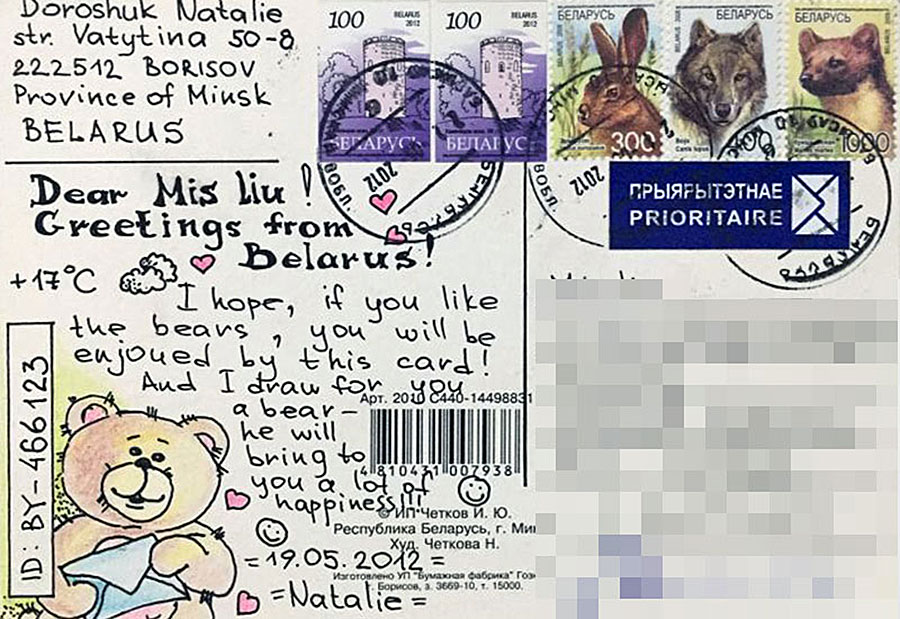 Doroshuk Natalie
str. Vatytina 50-8
222512 BORISOV
Province of Minsk
BELARUS
100 BELARUS 2012
БЕЛАРУСЬ
100 BELARUS 2012
БЕЛАРУСЬ
БЕЛАРУСЬ
300
БЕЛАРУСЬ
Canis lupus
БЕЛАРУСЬ
1000
2012
2012
ПРЫЯРЫТЭТНАЕ
PRIORITAIRE
Dear Mis Liu!
Greetings from
Belarus!
+17°C
I hope, if you like
the bears, you will be
enjoued by this card!
And I draw for you
a bear-
he will
bring to
you a lot of
happiness!!!
ID: BY-466123
Арт. 2010 С440-14498831
4 810431 007938
© ИП Четков И. Ю.
Республика Беларусь, г. Мин
Худ. Четкова Н.
=19.05.2012=
Изготовлено УП "Бумажная фабрика" Гоз
г. Борисов, з. 3669-10, т. 15000.
=Natalie=